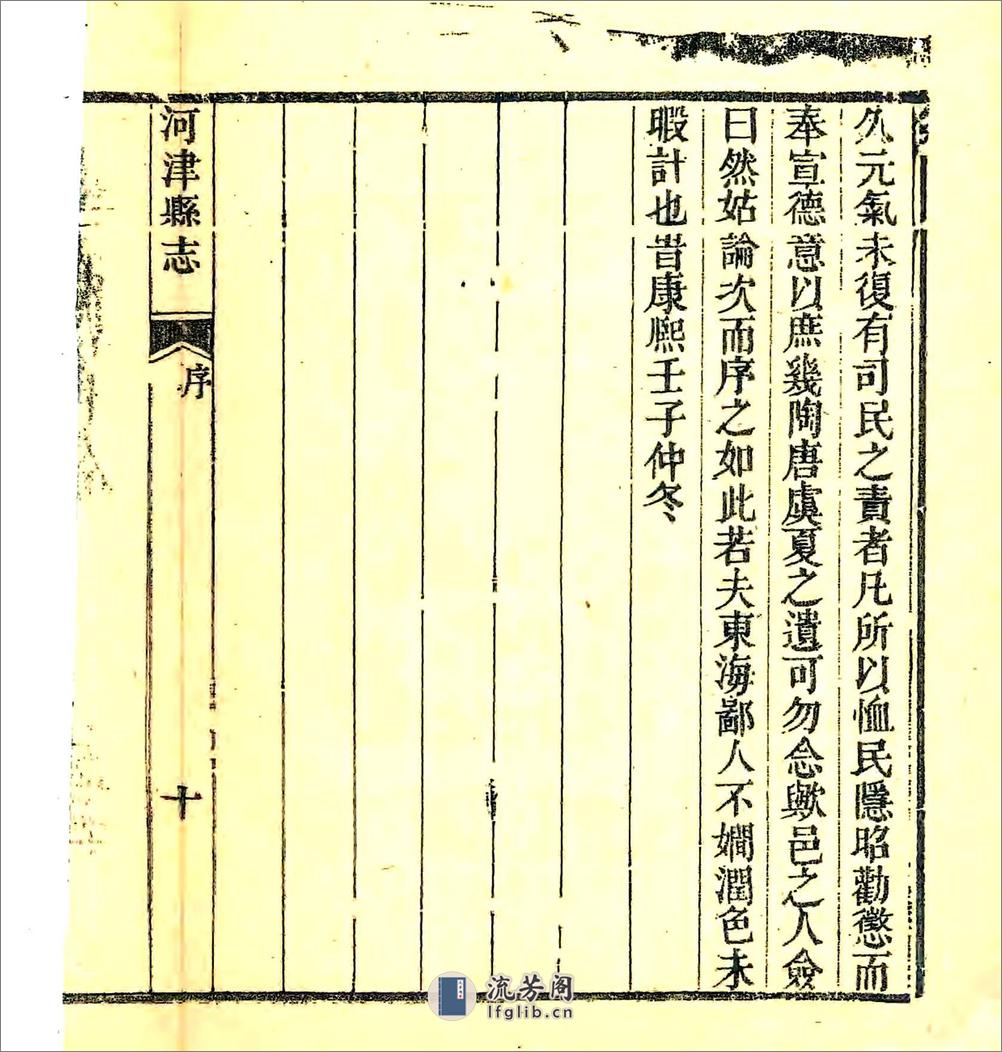 久元氣未復有司民之責者凡所以恤民隱昭勸懲而
奉宣德意以庶幾陶唐虞夏之遺可勿念歟邑之人僉
曰然姑論次而序之如此若夫東海鄙人不嫺潤色未
暇計也旹康熙壬子仲冬
河津縣志
序
十
流芳阁
lfglib.cn